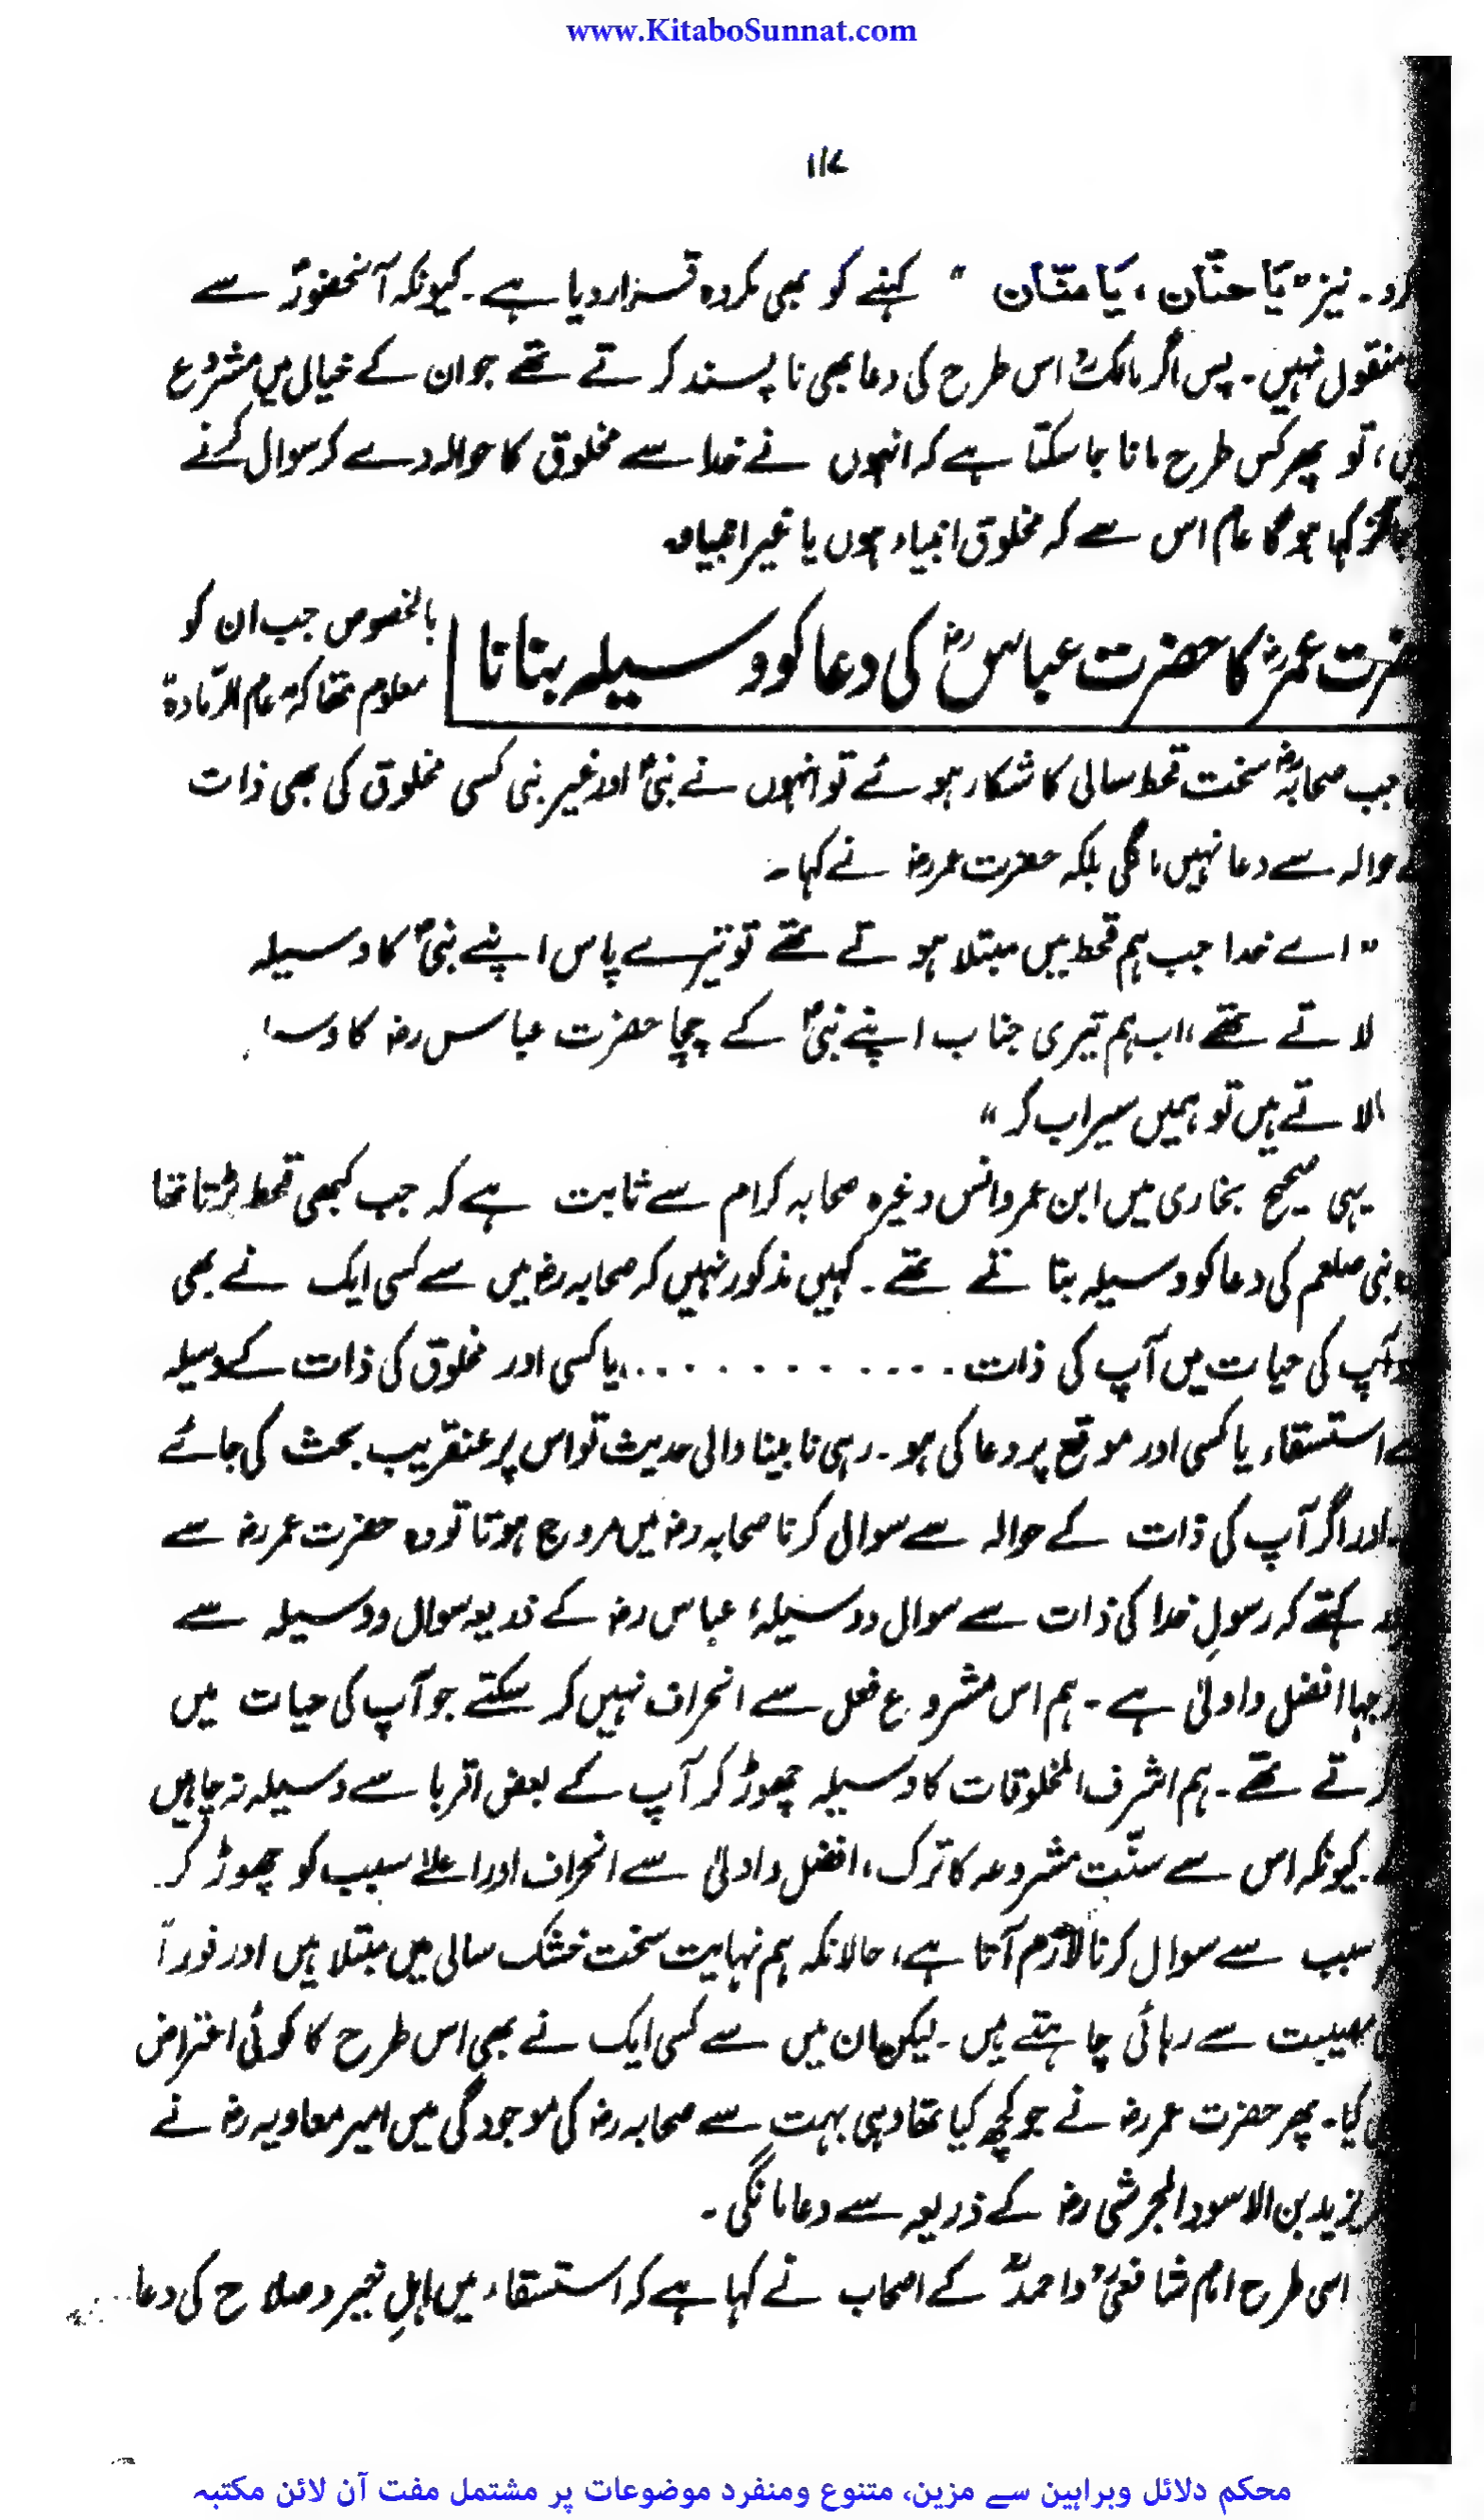 www.KitaboSunnat.com
۱۱۷
کرو۔ نیز "یَا حنّان، یَا منّان" کہنے کو بھی مکروہ قرار دیا ہے۔ کیونکہ آنحضورؐ سے
منقول نہیں۔ پس اگر مالکؒ اس طرح کی دعا بھی ناپسند کرتے تھے جو ان کے خیال میں مشروع
تو پھر کس طرح مانا جا سکتا ہے کہ انہوں نے خدا سے مخلوق کا حوالہ دے کر سوال کرنے
کہا ہوگا عام اس سے کہ مخلوق انبیاء ہوں یا غیر انبیاء۔
حضرت عمرؓ کا حضرت عباسؓ کی دعا کو وسیلہ بنانا
بالخصوص جب ان کو
معلوم تھا کہ "عام الرّمادۃ
جب صحابہؓ سخت قحط سالی کا شکار ہوئے تو انہوں نے نبیؐ اور غیر نبی کسی مخلوق کی بھی ذات
حوالہ سے دعا نہیں مانگی بلکہ حضرت عمر رضؓ نے کہا۔
"اے خدا جب ہم قحط میں مبتلا ہوتے تھے تو تیرے پاس اپنے نبیؐ کا وسیلہ
لاتے تھے، اب ہم تیری جناب اپنے نبیؐ کے چچا حضرت عباس رضؓ کا
لاتے ہیں تو ہمیں سیراب کر"
یہی صحیح بخاری میں ابن عمر و انس وغیرہ صحابہ کرام سے ثابت ہے کہ جب کبھی قحط پڑتا تھا
نبی صلعم کی دعا کو وسیلہ بناتے تھے۔ کہیں مذکور نہیں کہ صحابہ رضؓ میں سے کسی ایک نے بھی
آپ کی حیات میں آپ کی ذات . . . . . . . . . . . . یا کسی اور مخلوق کی ذات کے وسیلہ
استسقاء یا کسی اور موقع پر دعا کی ہو۔ رہی نابینا والی حدیث تو اس پر عنقریب بحث کی جائے
اور اگر آپ کی ذات کے حوالہ سے سوال کرنا صحابہ رضؓ میں مروج ہوتا تو وہ حضرت عمر رضؓ سے
کہتے کہ رسولِ خدا کی ذات سے سوال و وسیلہ، عباس رضؓ کے ذریعہ سوال و وسیلہ سے
افضل و اولیٰ ہے۔ ہم اس مشروع فعل سے انحراف نہیں کر سکتے جو آپ کی حیات میں
کرتے تھے۔ ہم اشرف المخلوقات کا وسیلہ چھوڑ کر آپ کے بعض اقربا سے وسیلہ نہ چاہیں
کیونکہ اس سے سنّت مشروعہ کا ترک، افضل و اولیٰ سے انحراف اور اعلےٰ سبب کو چھوڑ کر
سبب سے سوال کرنا لازم آتا ہے، حالانکہ ہم نہایت سخت خشک سالی میں مبتلا ہیں اور فوراً
مصیبت سے رہائی چاہتے ہیں۔ لیکن ان میں سے کسی ایک نے بھی اس طرح کا کوئی اعتراض
کیا۔ پھر حضرت عمر رضؓ نے جو کچھ کیا تھا وہی بہت سے صحابہ رضؓ کی موجودگی میں امیر معاویہ رضؓ نے
یزید بن الاسود الجرشی رضؓ کے ذریعہ سے دعا مانگی۔
اسی طرح امام شافعیؒ و احمدؒ کے اصحاب نے کہا ہے کہ استسقاء میں اہلِ خیر و صلاح کی دعا
محکم دلائل وبراہین سے مزین، متنوع ومنفرد موضوعات پر مشتمل مفت آن لائن مکتبہ